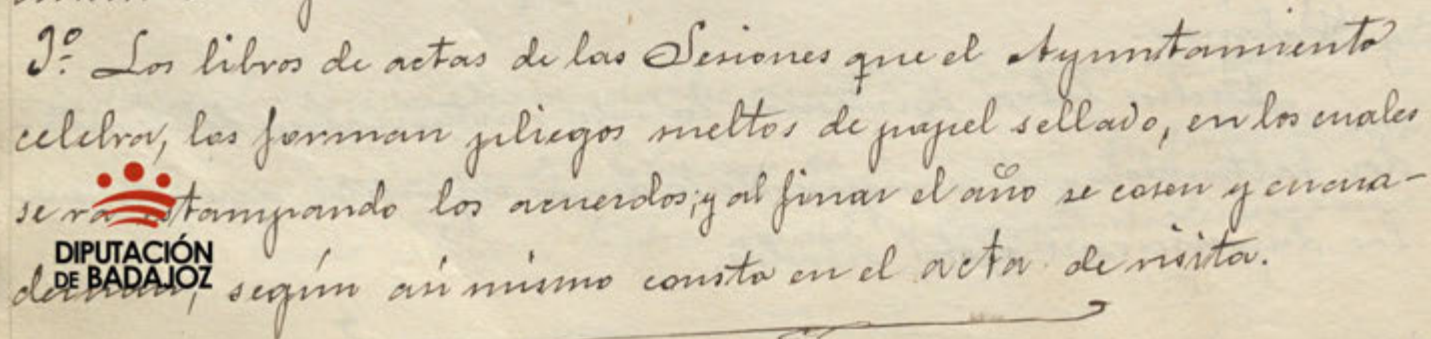 3º. Los libros de actas de las Sesiones que el Ayuntamiento
celebra, los forman pliegos sueltos de papel sellado, en los cuales
se va estampando los acuerdos; y al finar el año se cosen y encua-
dernan, según asi mismo consta en el acta de visita.
DIPUTACIÓN
DE BADAJOZ